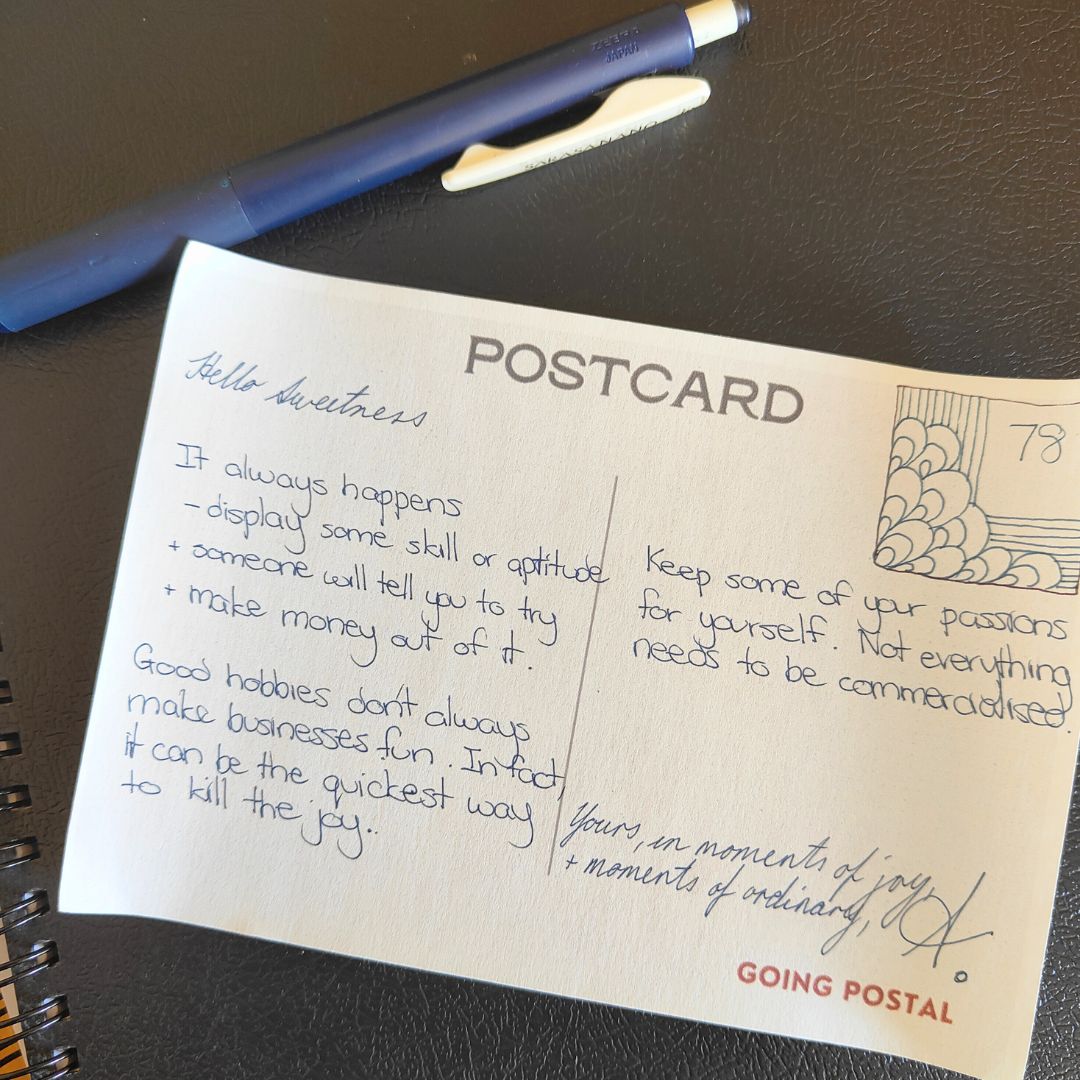 ZEBRA
JAPAN
SARASA NANO
POSTCARD
78
Hello Sweetness
It always happens
- display some skill or aptitude
+ someone will tell you to try
+ make money out of it.
Good hobbies don't always
make businesses fun. In fact,
it can be the quickest way
to kill the joy..
Keep some of your passions
for yourself. Not everything
needs to be commercialised.
Yours, in moments of joy,
+ moments of ordinary,
A.
GOING POSTAL